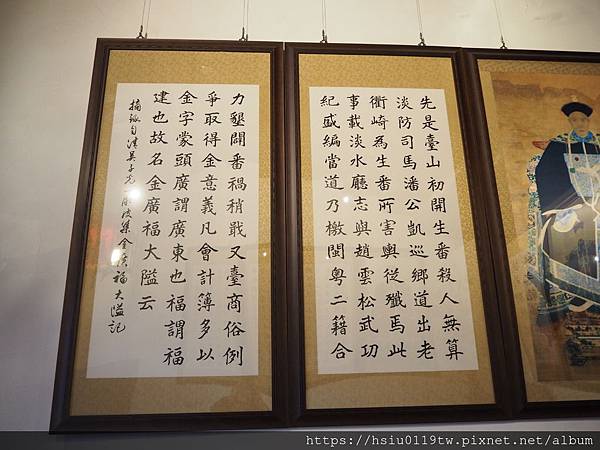 先是臺山初開生番殺人無算
淡防司馬潘公凱巡鄉道出老
衢崎為生番所害輿從殲焉此
事載淡水廳志與趙雲松武功
紀盛編當道乃檄閩粵二籍合
力墾闢番禍稍戢又臺商俗例
爭取得金意義凡會計簿多以
金字蒙頭廣謂廣東也福謂福
建也故名金廣福大隘云
摘錄自清吳子光 皮集金廣福大隘記
https://hsiu0119tw.pixnet.net/album